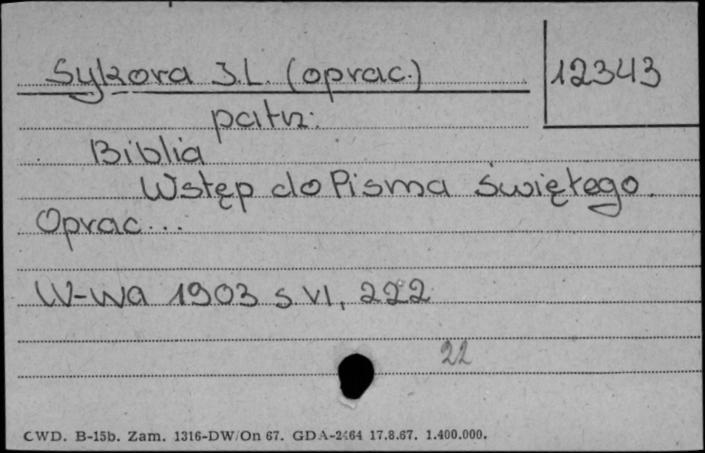 Sykora J.L. (oprac.)
12343
patrz:
Biblia
Wstęp do Pisma świętego.
Oprac...
W-wa 1903 s. VI, 222
22
CWD. B-15b. Zam. 1316-DW/On 67. GDA-2464 17.8.67. 1.400.000.